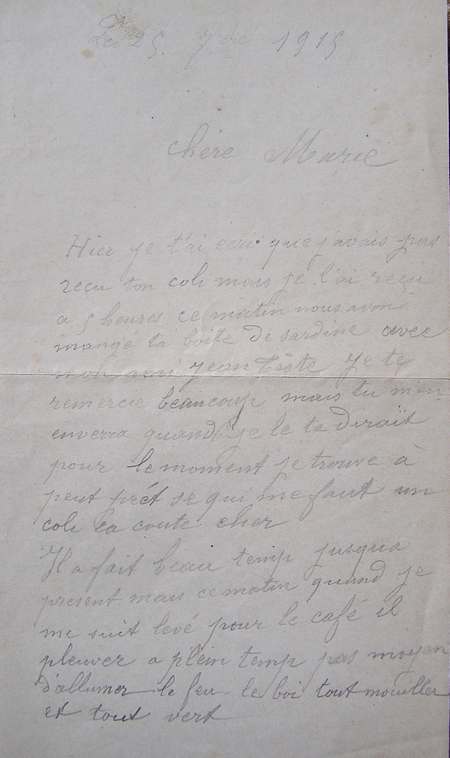 Le 25 7bre 1915
Chère Marie
Hier je t'ai ecri que j'avais pas
reçu ton coli mais je l'ai reçu
a 5 heures ce matin nous avon
mangé la boite de sardine avec
mon ami Jean je te
remercie beaucoup mais tu m'en
enverra quand je le te dirait
pour le moment je trouve à
peut prét se qui me faut un
coli ca coute cher
Il a fait beau temp jusqua
present mais ce matin quand je
me suit levé pour le café il
pleuver a plein temp pas moyen
d'allumer le feu le boi tout mouiller
et tout vert